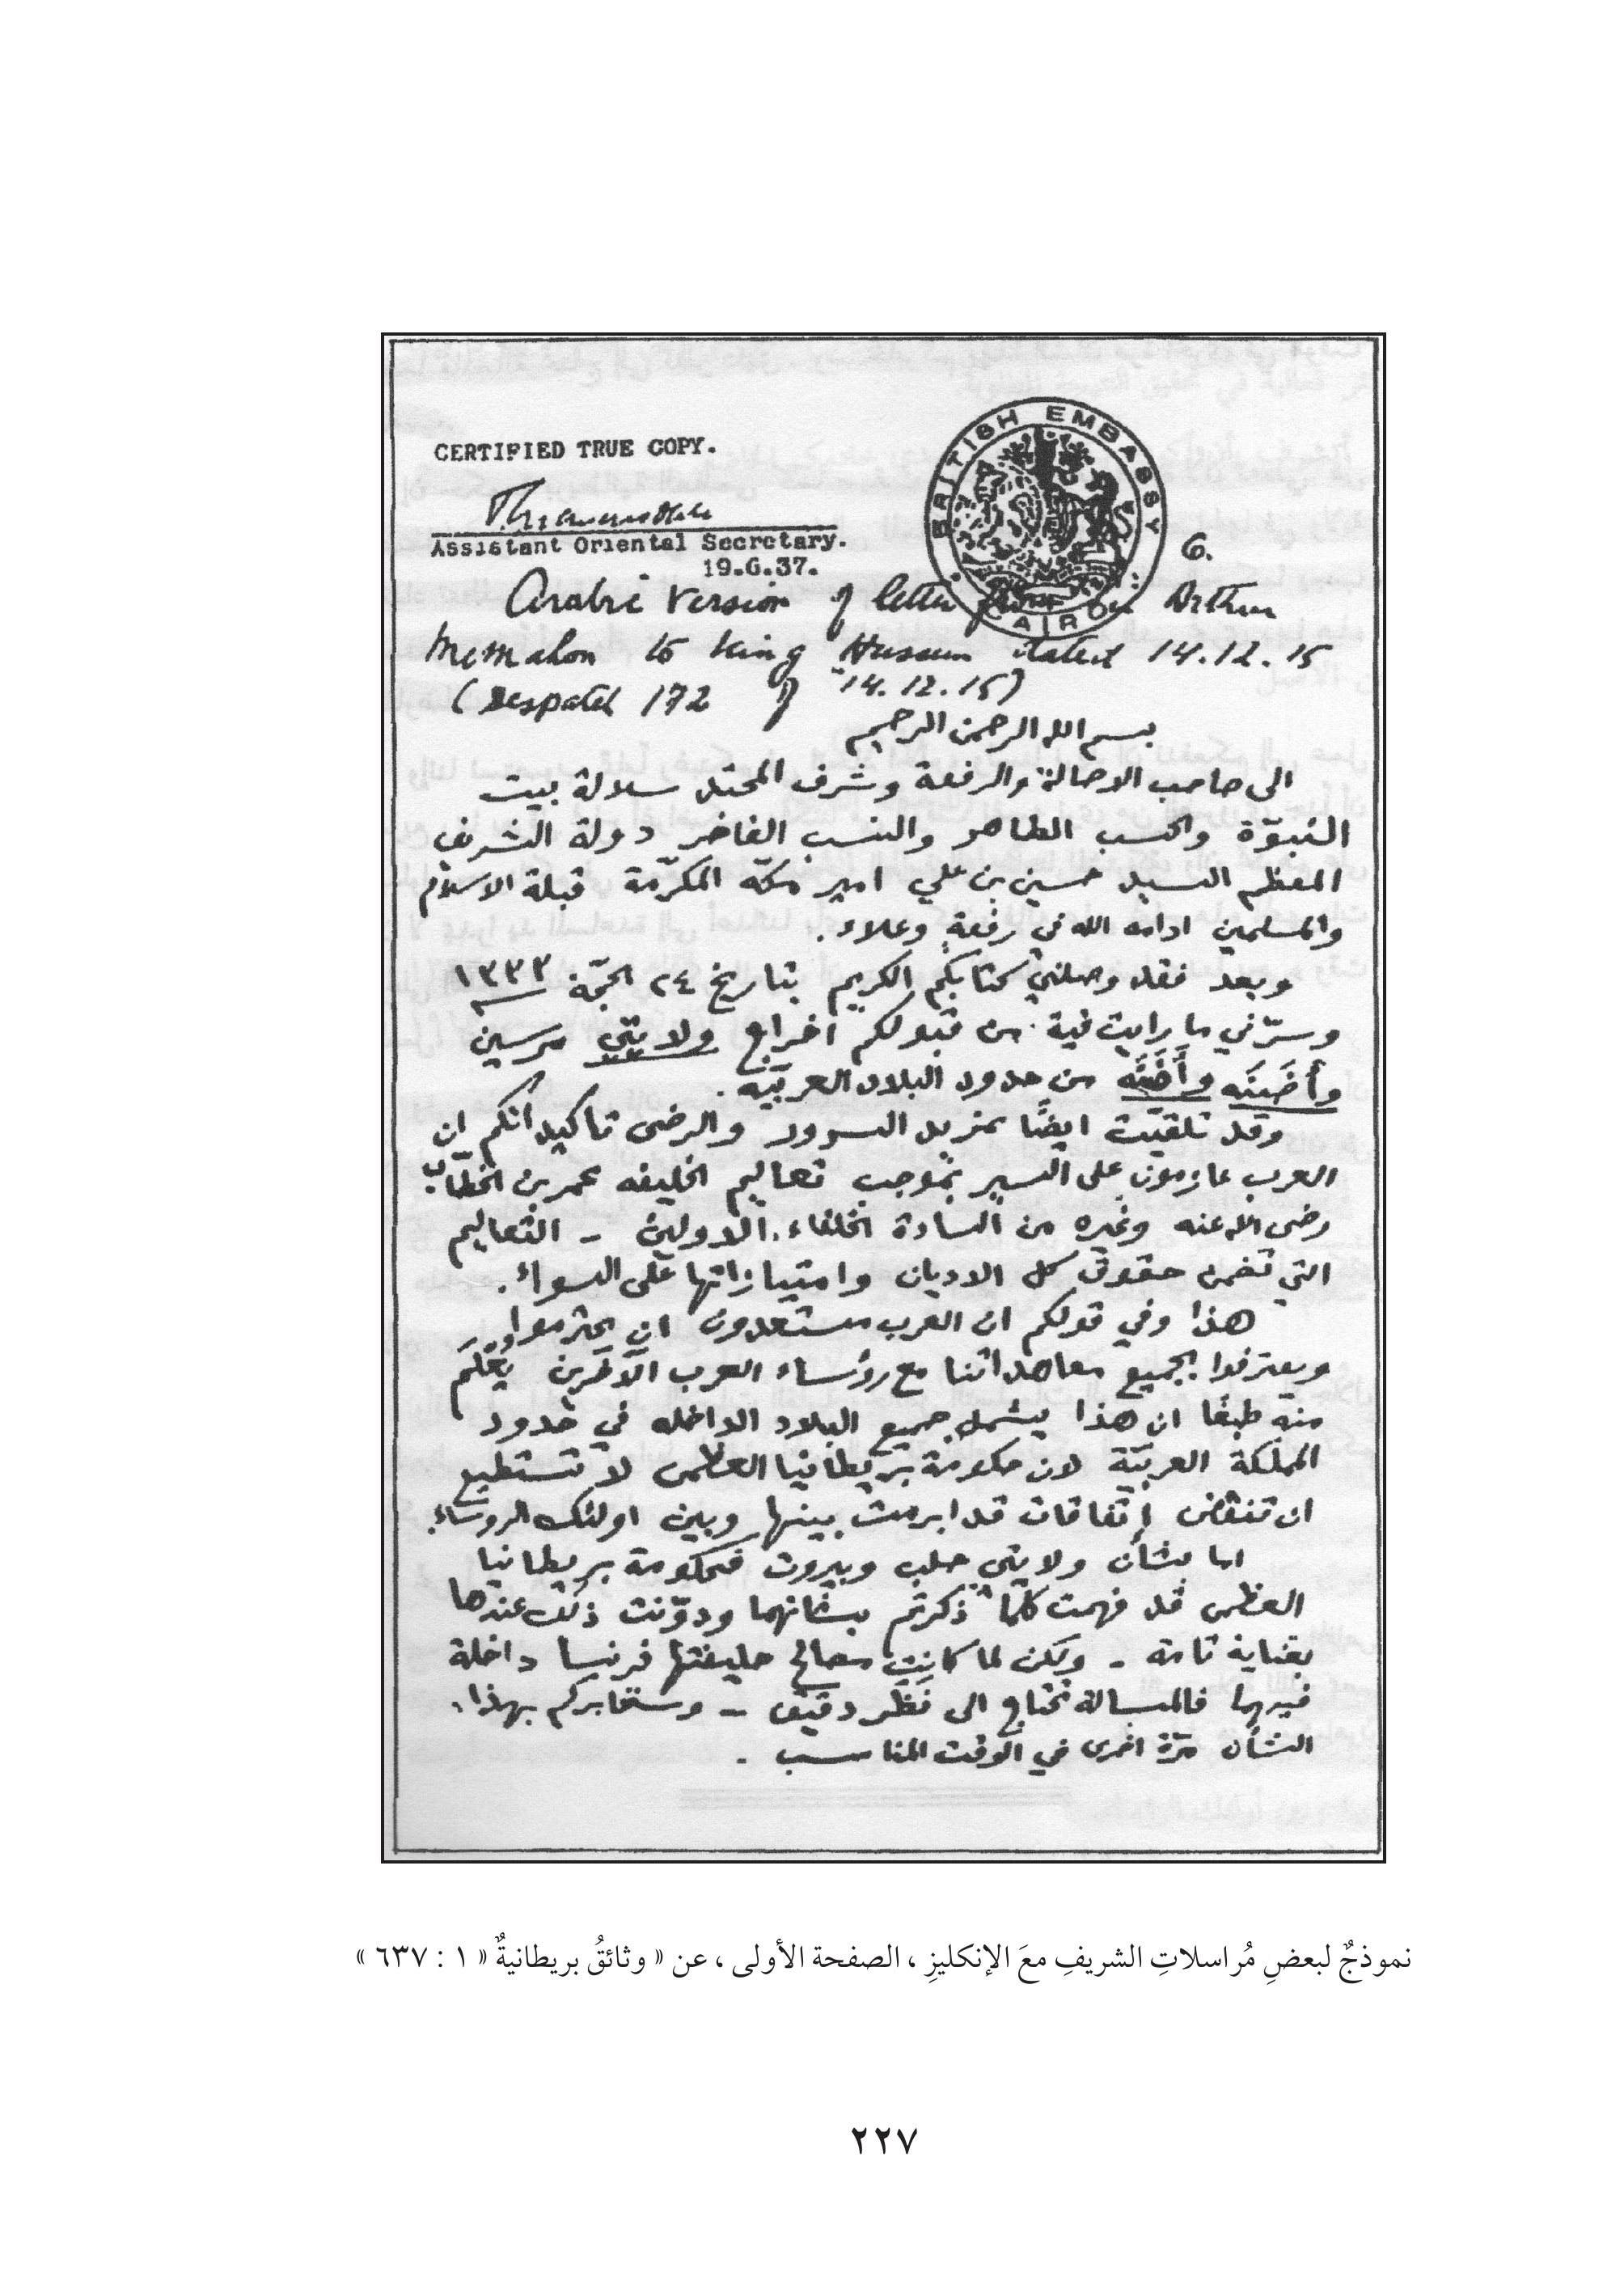 CERTIFIED TRUE COPY.
Assistant Oriental Secretary.
19.6.37.
BRITISH EMBASSY
CAIRO
6.
Arabic Version of letter from Sir Arthur
McMahon to King Hussein dated 14.12.15
(Despatch 172 of 14.12.15)
بسم الله الرحمن الرحيم
الى صاحب الاصالة والرفعة وشرف المحتد سلالة بيت
النبوّة والحسب الطاهر والنسب الفاخر دولة الشريف
المعظم السيد حسين بن علي امير مكّة المكرّمة قبلة الاسلام
والمسلمين ادامه الله في رفعة وعلاء.
وبعد فقد وصلني كتابكم الكريم بتاريخ ٢٤ الحجّة ١٣٣٣
وسرّني ما رايت فيه من قبولكم اخراج ولايتي مرسين
وأضَنَه من حدود البلاد العربيّه.
وقد تلقيّت ايضًا بمزيد السرور والرضى تاكيداتكم ان
العرب عازمون على السير بموجب تعاليم الخليفه عمر بن الخطّاب
رضى الله عنه وغيره من السادة الخلفاء الاولين – التعاليم
التي تضمن حقوق كل الاديان وامتيازاتها على السواء.
هذا وفي قولكم ان العرب مستعدون ان يحترموا
ويعترفوا بجميع معاهداتنا مع رؤساء العرب الآخرين يُعْلَم
منه طبعًا ان هذا يشمل جميع البلاد الداخله في حدود
المملكة العربيّة لان حكومة بريطانيا العظمى لا تستطيع
ان تنقض إتفاقات قد ابرمت بينها وبين اولئك الروساء.
اما بشأن ولايتي حلب وبيروت فحكومة بريطانيا
العظمى قد فهمت كلّما ذكرتم بشانهما ودوّنت ذلك عندها
بعناية تامة – ولكن لما كانت مصالح حليفتها فرنسا داخلة
فيهما فالمسالة تحتاج الى نظر دقيق – وسنخابركم بهذا
الشأن مرّة اخرى في الوقت المناسب.
نموذجٌ لبعضِ مُراسلاتِ الشريفِ معَ الإنكليزِ ، الصفحة الأولى ، عن « وثائقُ بريطانيةٌ « ١ : ٦٣٧ »
٢٢٧